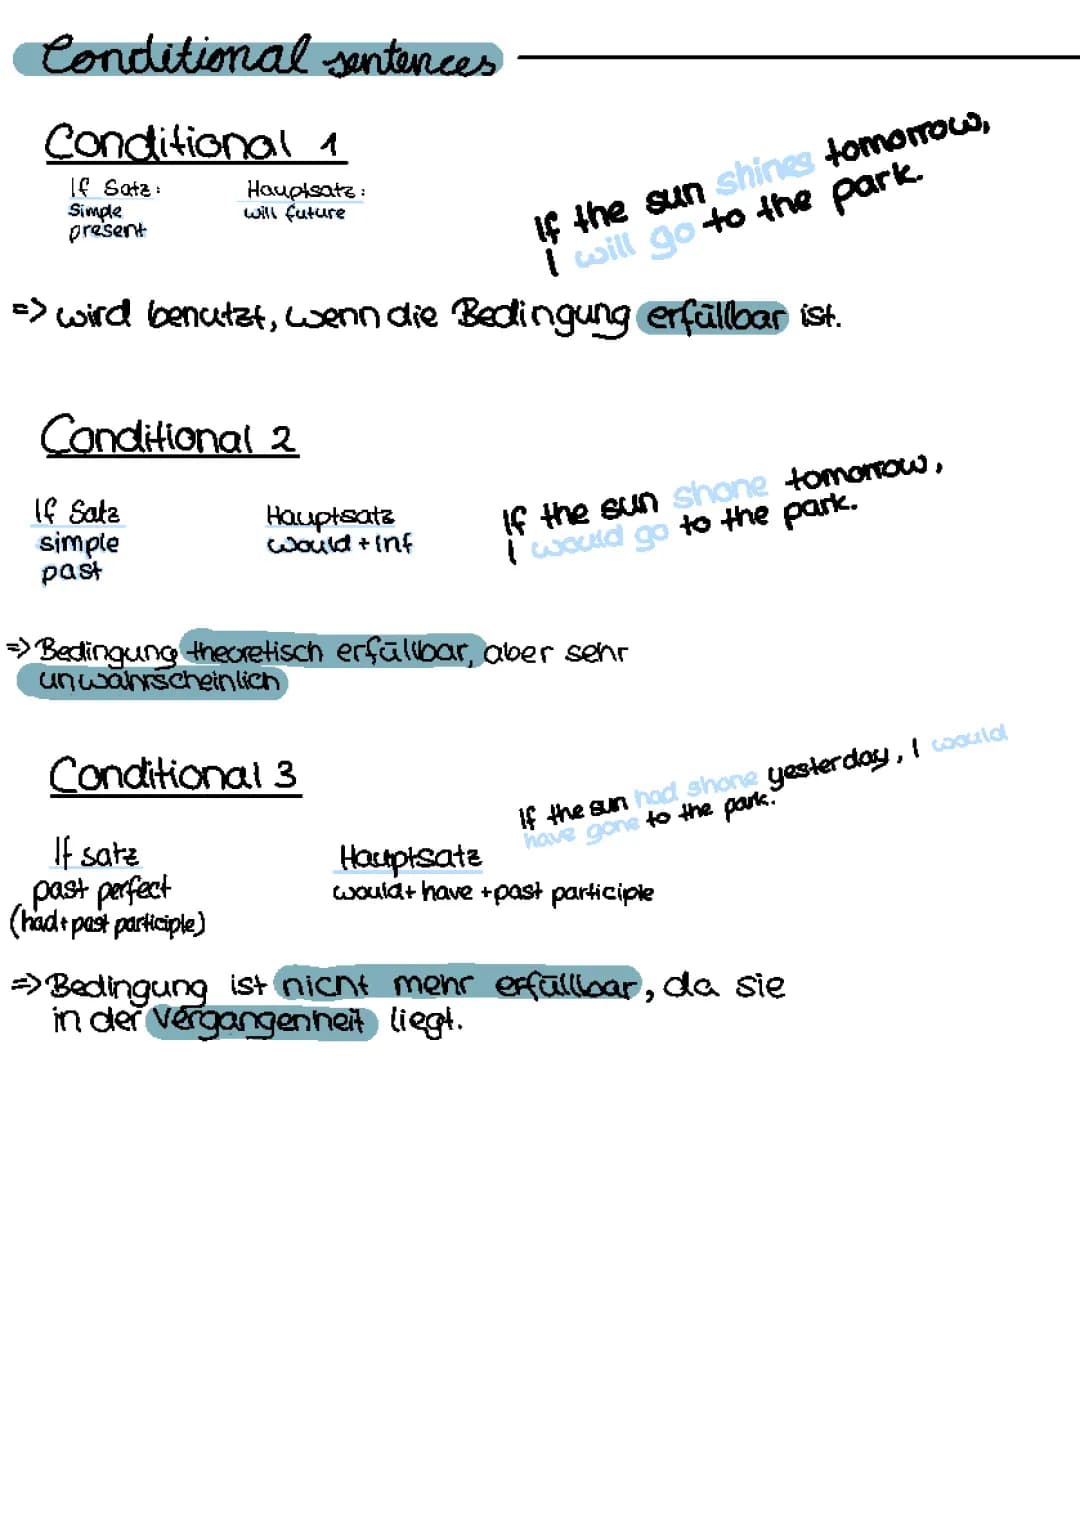 Conditional sentences
Conditional 1
If Satz:
Simple
present
Hauptsatz:
will future
If the sun shines tomorrow,
I will go to the park.
=> wird benutzt, wenn die Bedingung erfüllbar ist.
Conditional 2
If Satz
simple
past
Hauptsatz
would + inf
If the sun shone tomorrow,
I would go to the park.
=> Bedingung theoretisch erfüllbar, aber sehr
unwahrscheinlich
Conditional 3
If the sun had shone yesterday, I would
have gone to the park.
If satz
past perfect
(had + past participle)
Hauptsatz
would + have + past participle
=> Bedingung ist nicht mehr erfüllbar, da sie
in der Vergangenheit liegt.